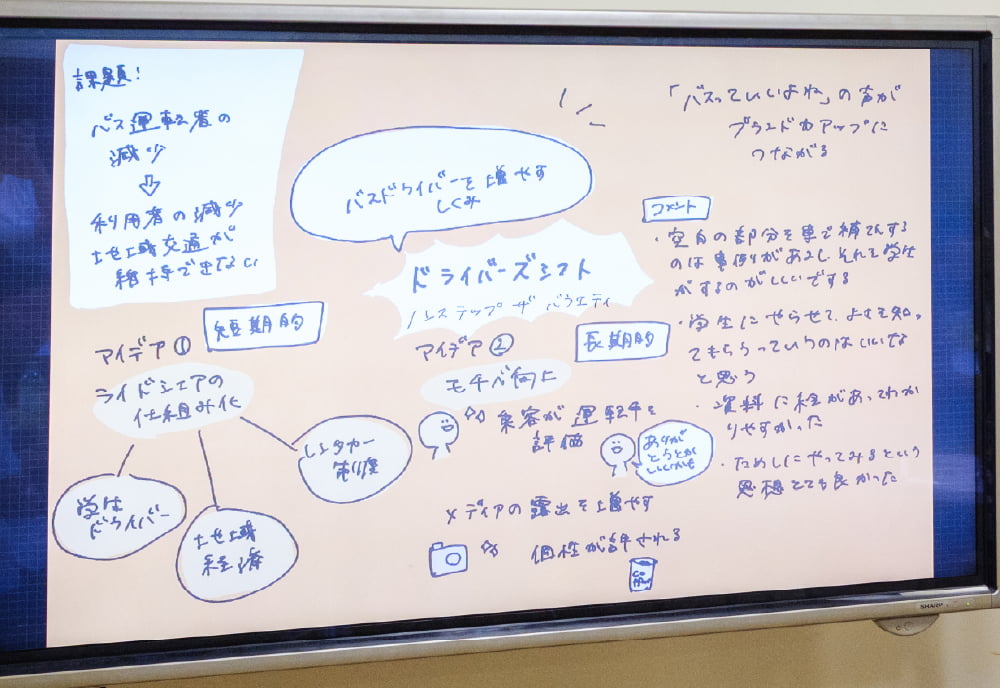 課題!
バス運転者の
減少
⇩
利用者の減少
地域交通が
維持できない
バスドライバーを増やす
しくみ
ドライバーズシフト
ノンステップ ザ バラエティ
「バスっていいよね」の声が
ブランド力アップに
つながる
アイデア①
短期的
ライドシェアの
仕組み化
学生
ドライバー
地域
経済
レンタカー
制度
アイデア②
長期的
モチベ向上
乗客が運転手を
評価
ありが
とうとか
いいかも
メディアの露出を増やす
個性が許される
コメント
・空白の部分を車で補てんする
のは事例があるし、それを学生
がするのがいいです
・学生にやらせて、よさを知っ
てもらうっていうのはいいな
と思う
・資料に絵があってわか
りやすかった
・ためしにやってみるという
思想とても良かった
SHARP